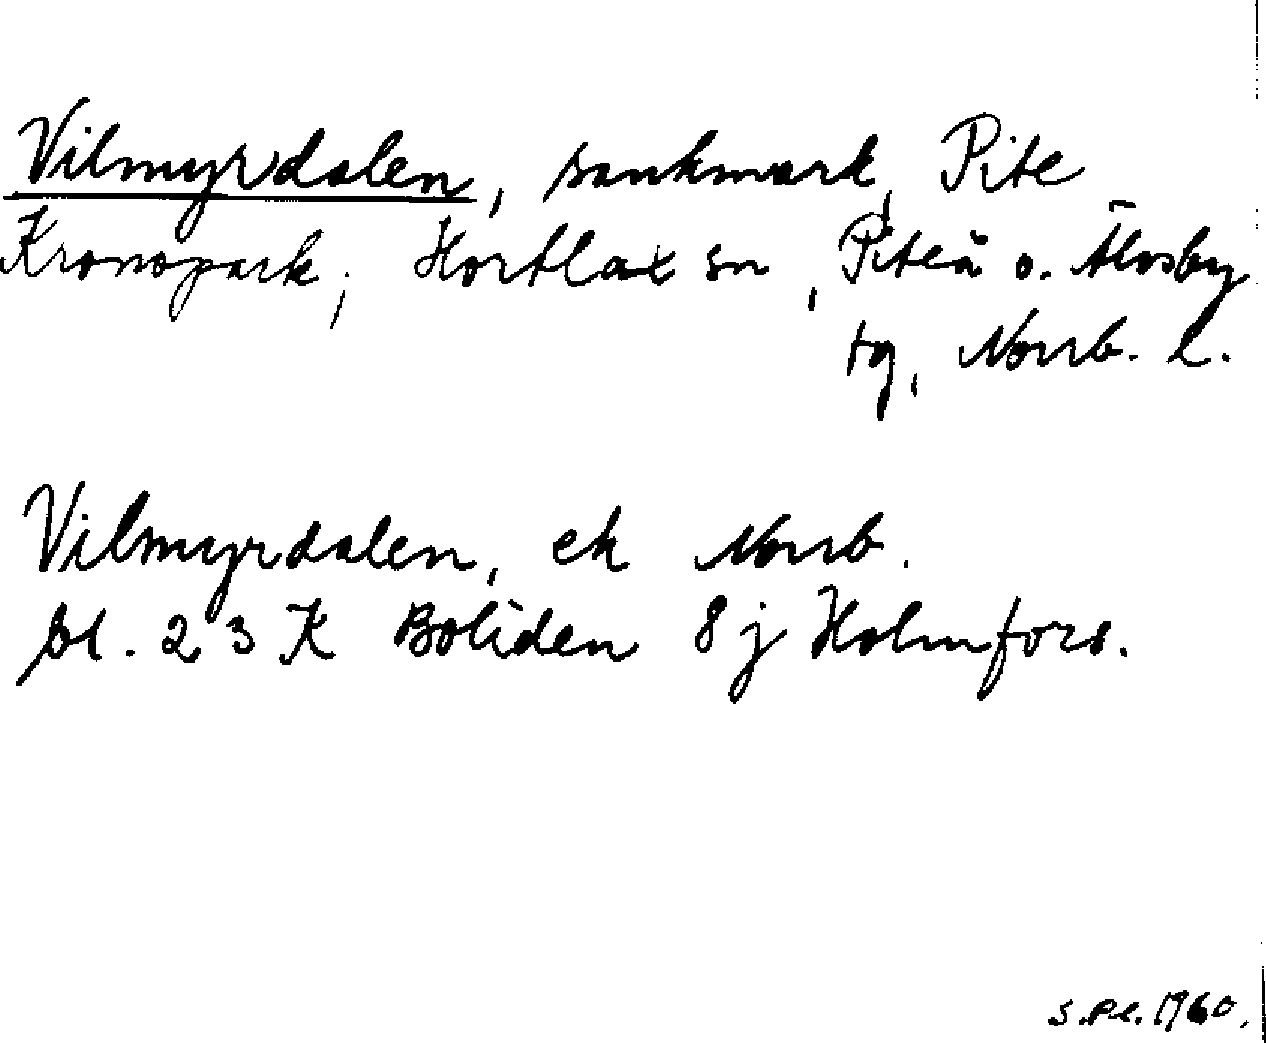 Vilmyrdalen, sankmark, Pite
Kronopark, Hortlax sn, Piteå o. Älvsby
tg, Norrb. l.
Vilmyrdalen, ek Norrb.
bl. 23 K Boliden 8 j Holmfors.
S.Pl. 1960.